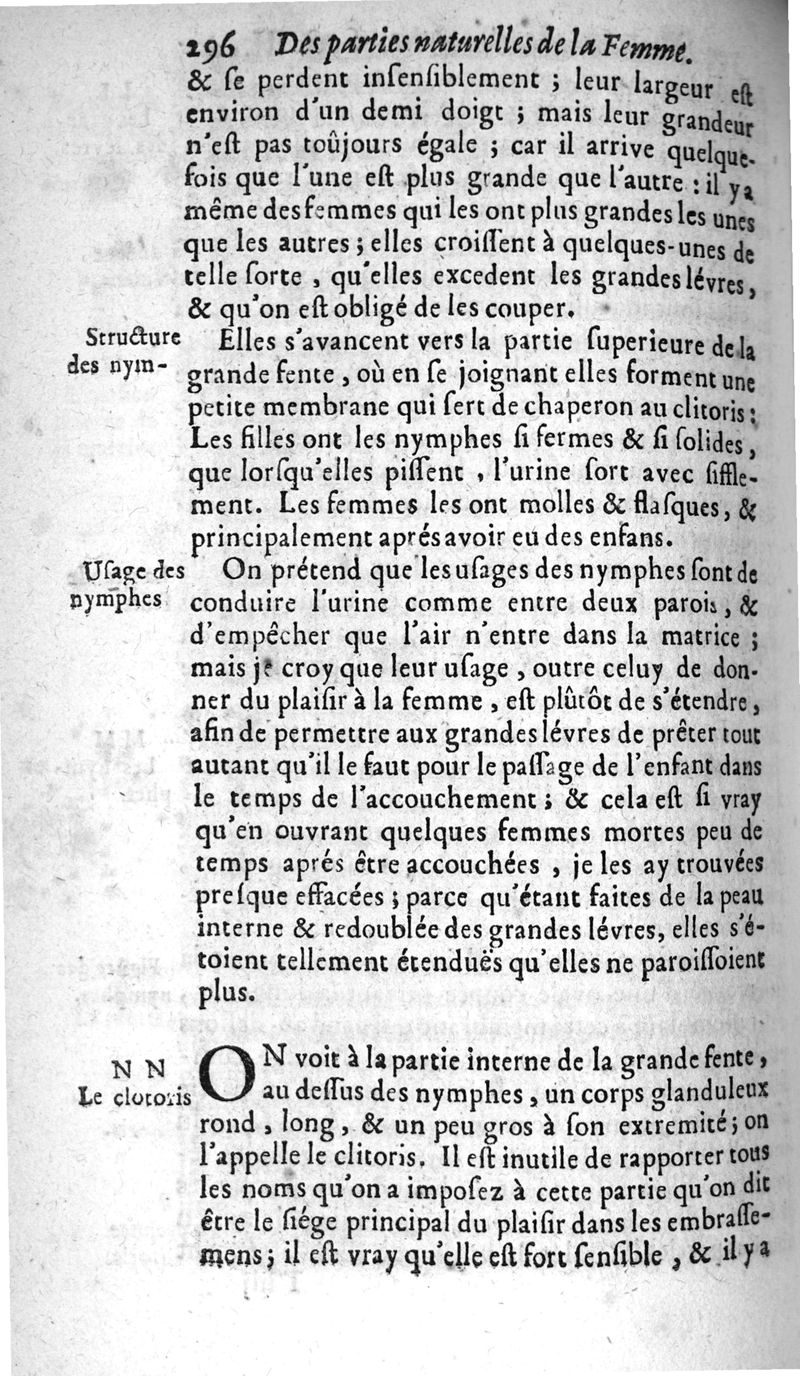 296 Des parties naturelles de la Femme.
& ſe perdent inſenſiblement ; leur largeur eſt
environ d'un demi doigt ; mais leur grandeur
n'eſt pas toûjours égale ; car il arrive quelque-
fois que l'une eſt plus grande que l'autre : il y a
même des femmes qui les ont plus grandes les unes
que les autres ; elles croiſſent à quelques-unes de
telle ſorte , qu'elles excedent les grandes lévres ,
& qu'on eſt obligé de les couper.
Structure
des nym-
Elles s'avancent vers la partie ſuperieure de la
grande fente , où en ſe joignant elles forment une
petite membrane qui ſert de chaperon au clitoris :
Les filles ont les nymphes ſi fermes & ſi ſolides ,
que lorſqu'elles piſſent , l'urine ſort avec ſiffle-
ment. Les femmes les ont molles & flaſques , &
principalement aprés avoir eu des enfans.
Uſage des
nymphes
On prétend que les uſages des nymphes ſont de
conduire l'urine comme entre deux parois , &
d'empêcher que l'air n'entre dans la matrice ;
mais je croy que leur uſage , outre celuy de don-
ner du plaiſir à la femme , eſt plûtôt de s'étendre ,
afin de permettre aux grandes lévres de prêter tout
autant qu'il le faut pour le paſſage de l'enfant dans
le temps de l'accouchement ; & cela eſt ſi vray
qu'en ouvrant quelques femmes mortes peu de
temps aprés être accouchées , je les ay trouvées
preſque effacées ; parce qu'étant faites de la peau
interne & redoublée des grandes lévres, elles s'é-
toient tellement étenduës qu'elles ne paroiſſoient
plus.
N N
Le clotoris
ON voit à la partie interne de la grande fente ,
au deſſus des nymphes , un corps glanduleux
rond , long , & un peu gros à ſon extremité ; on
l'appelle le clitoris. Il eſt inutile de rapporter tous
les noms qu'on a impoſez à cette partie qu'on dit
être le ſiége principal du plaiſir dans les embraſſe-
mens ; il eſt vray qu'elle eſt fort ſenſible , & il y a